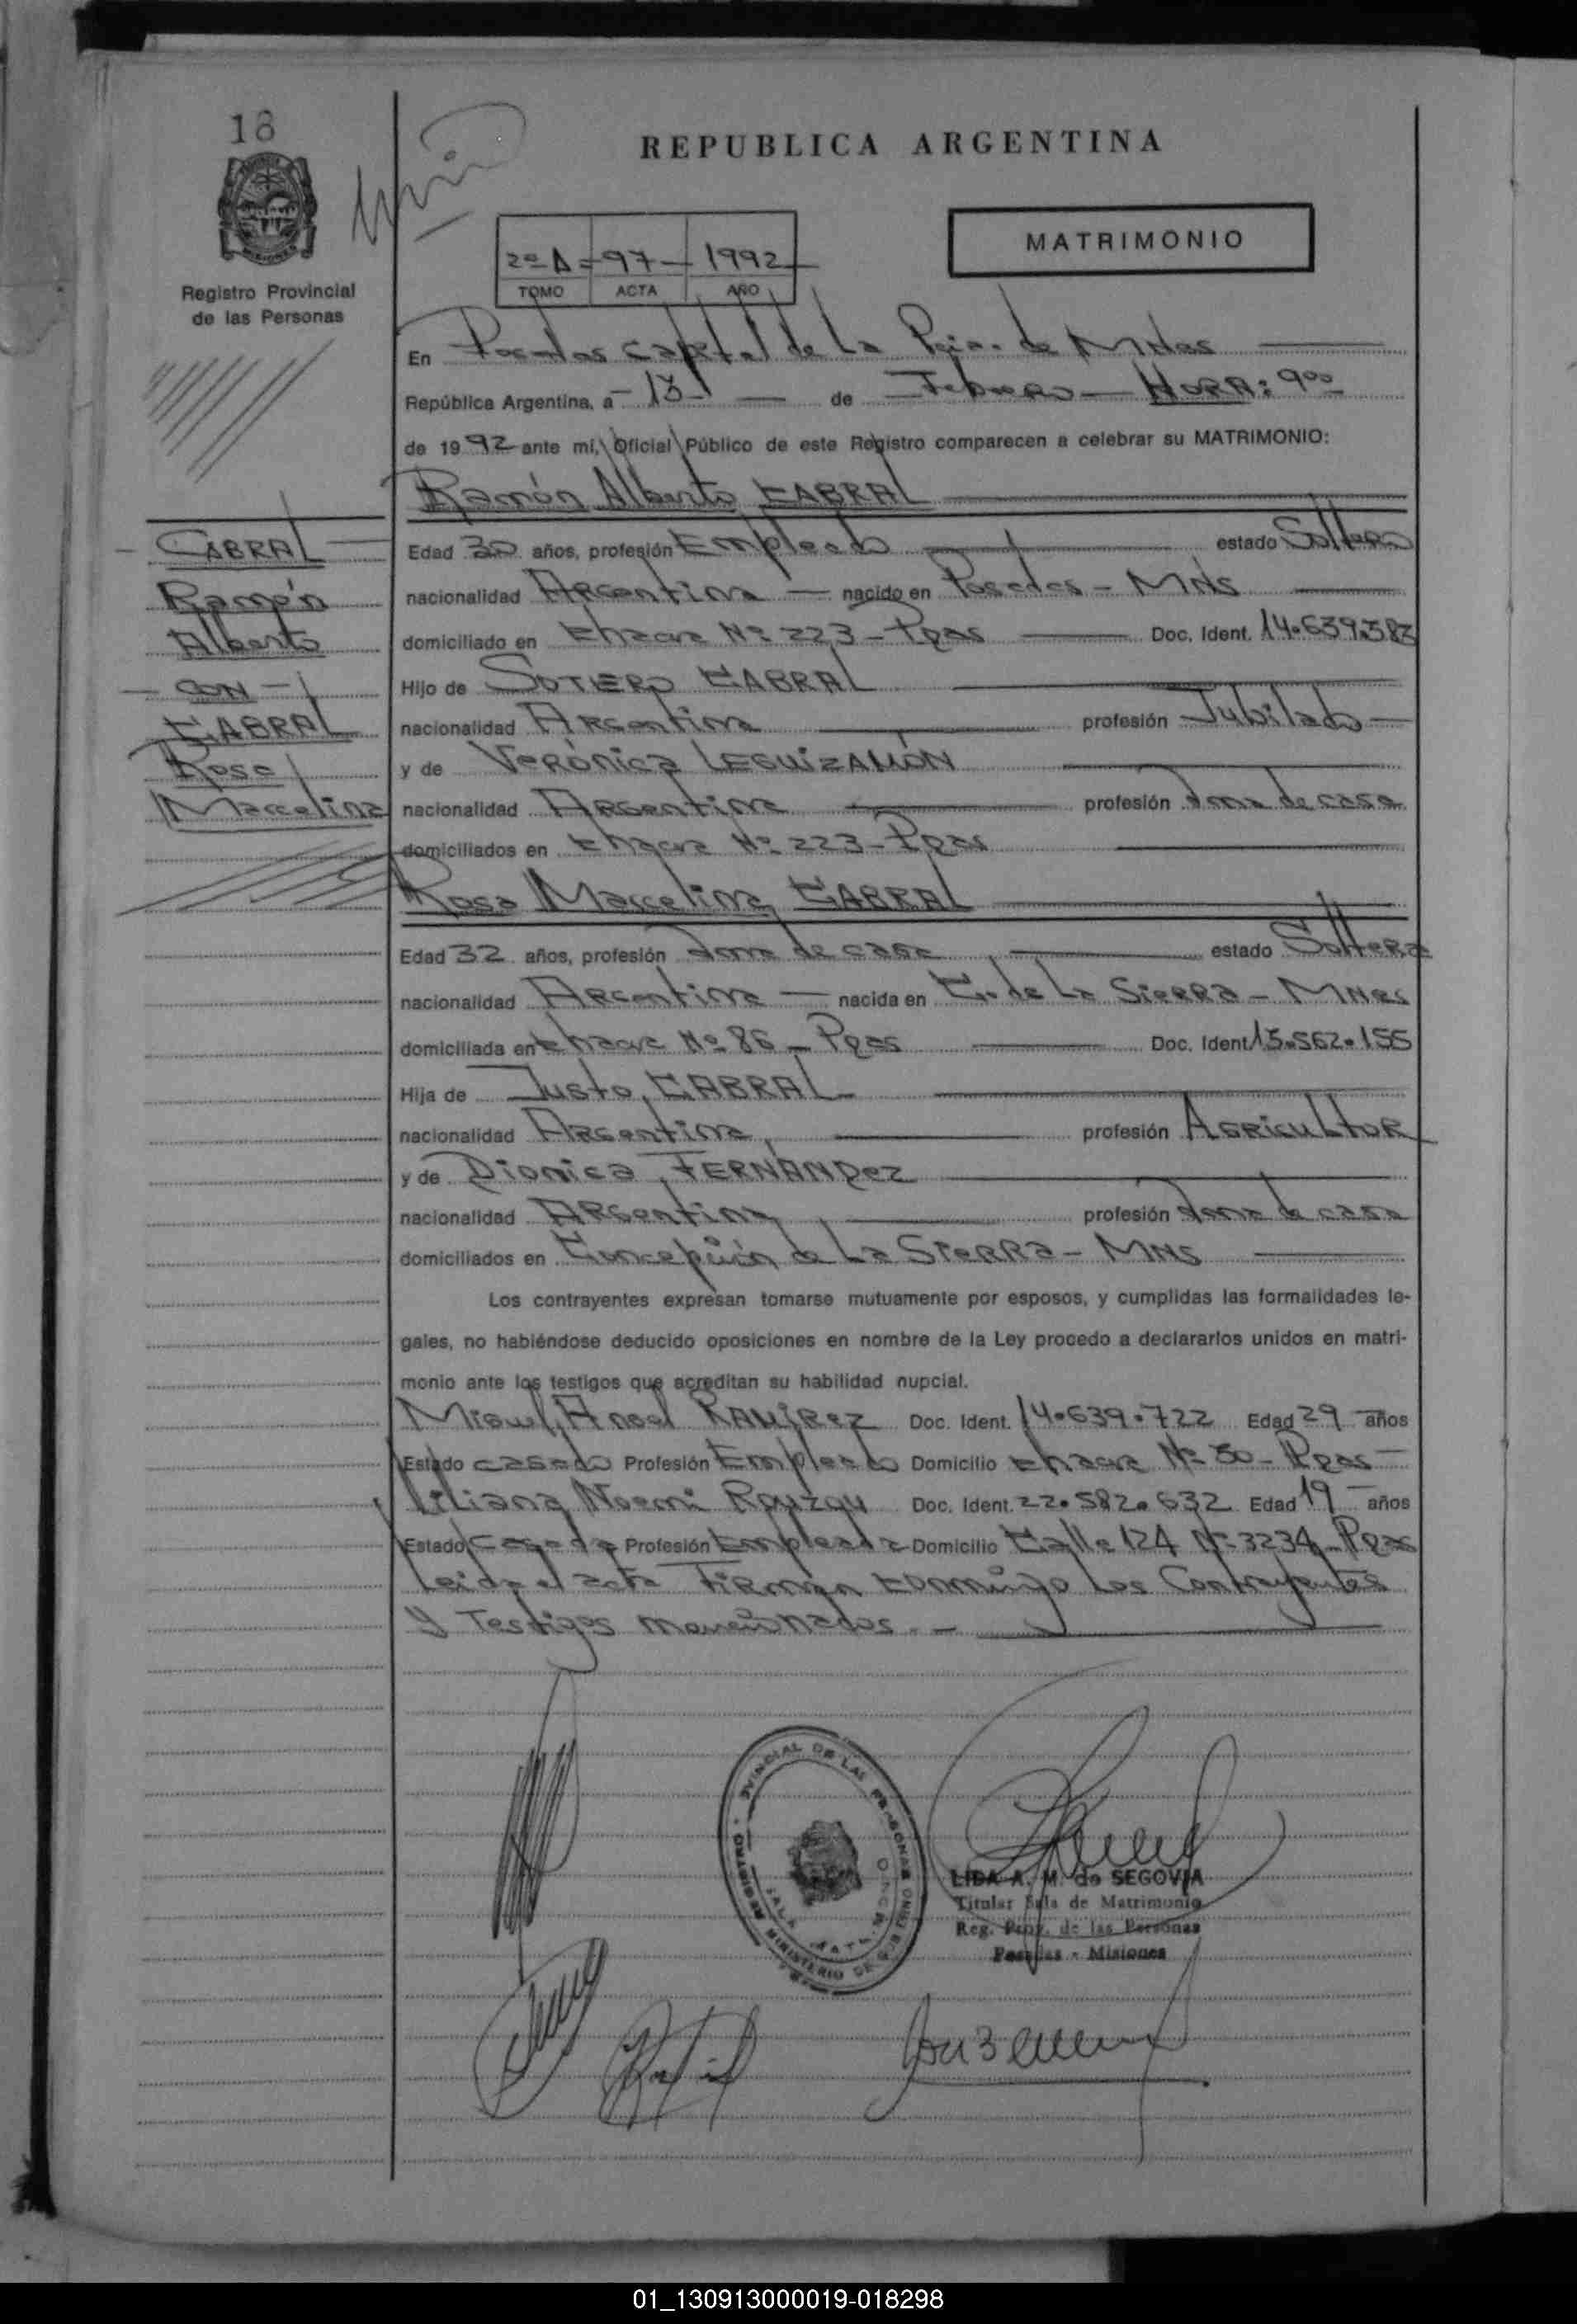 18
REPUBLICA ARGENTINA
MATRIMONIO
2º A - 97 - 1992
TOMO ACTA AÑO
Registro Provincial
de las Personas
En Posadas capital de la Pcia. de Mnes
República Argentina, a 13 de Febrero - HORA: 9ºº
de 1992 ante mí, Oficial Público de este Registro comparecen a celebrar su MATRIMONIO:
Ramón Alberto CABRAL
CABRAL
Ramón
Alberto
- CON -
CABRAL
Rosa
Marcelina
Edad 30 años, profesión Empleado estado Soltero
nacionalidad Argentina - nacido en Posadas - Mns
domiciliado en Chacra Nº 223 - Pdas Doc. Ident. 14.639.383
Hijo de SOTERO CABRAL
nacionalidad Argentina profesión Jubilado
y de Verónica LEGUIZAMÓN
nacionalidad Argentina profesión Ama de casa
domiciliados en Chacra Nº 223 - Pdas
Rosa Marcelina CABRAL
Edad 32 años, profesión Ama de casa estado Soltera
nacionalidad Argentina - nacida en C. de La Sierra - Mnes
domiciliada en Chacra Nº 86 - Pdas Doc. Ident. 13.562.155
Hija de Justo, CABRAL
nacionalidad Argentina profesión Agricultor
y de Dionica, FERNÁNDez
nacionalidad Argentina profesión Ama de casa
domiciliados en Concepción de La Sierra - Mns
Los contrayentes expresan tomarse mutuamente por esposos, y cumplidas las formalidades le-
gales, no habiéndose deducido oposiciones en nombre de la Ley procedo a declararlos unidos en matri-
monio ante los testigos que acreditan su habilidad nupcial.
Miguel Angel RAMÍRez Doc. Ident. 14.639.722 Edad 29 años
Estado casado Profesión Empleado Domicilio Chacra Nº 30 - Pdas
Liliana Noemi Doc. Ident. 22.582.632 Edad 19 años
Estado Casada Profesión Empleada Domicilio Calle 124 Nº 3234 - Pdas
Leida el acta Firman conmigo los Contrayentes
y Testigos mencionados. -
LIDA A. M. de SEGOVIA
Titular Sala de Matrimonio
Reg. Prov. de las Personas
Posadas - Misiones
01_130913000019-018298